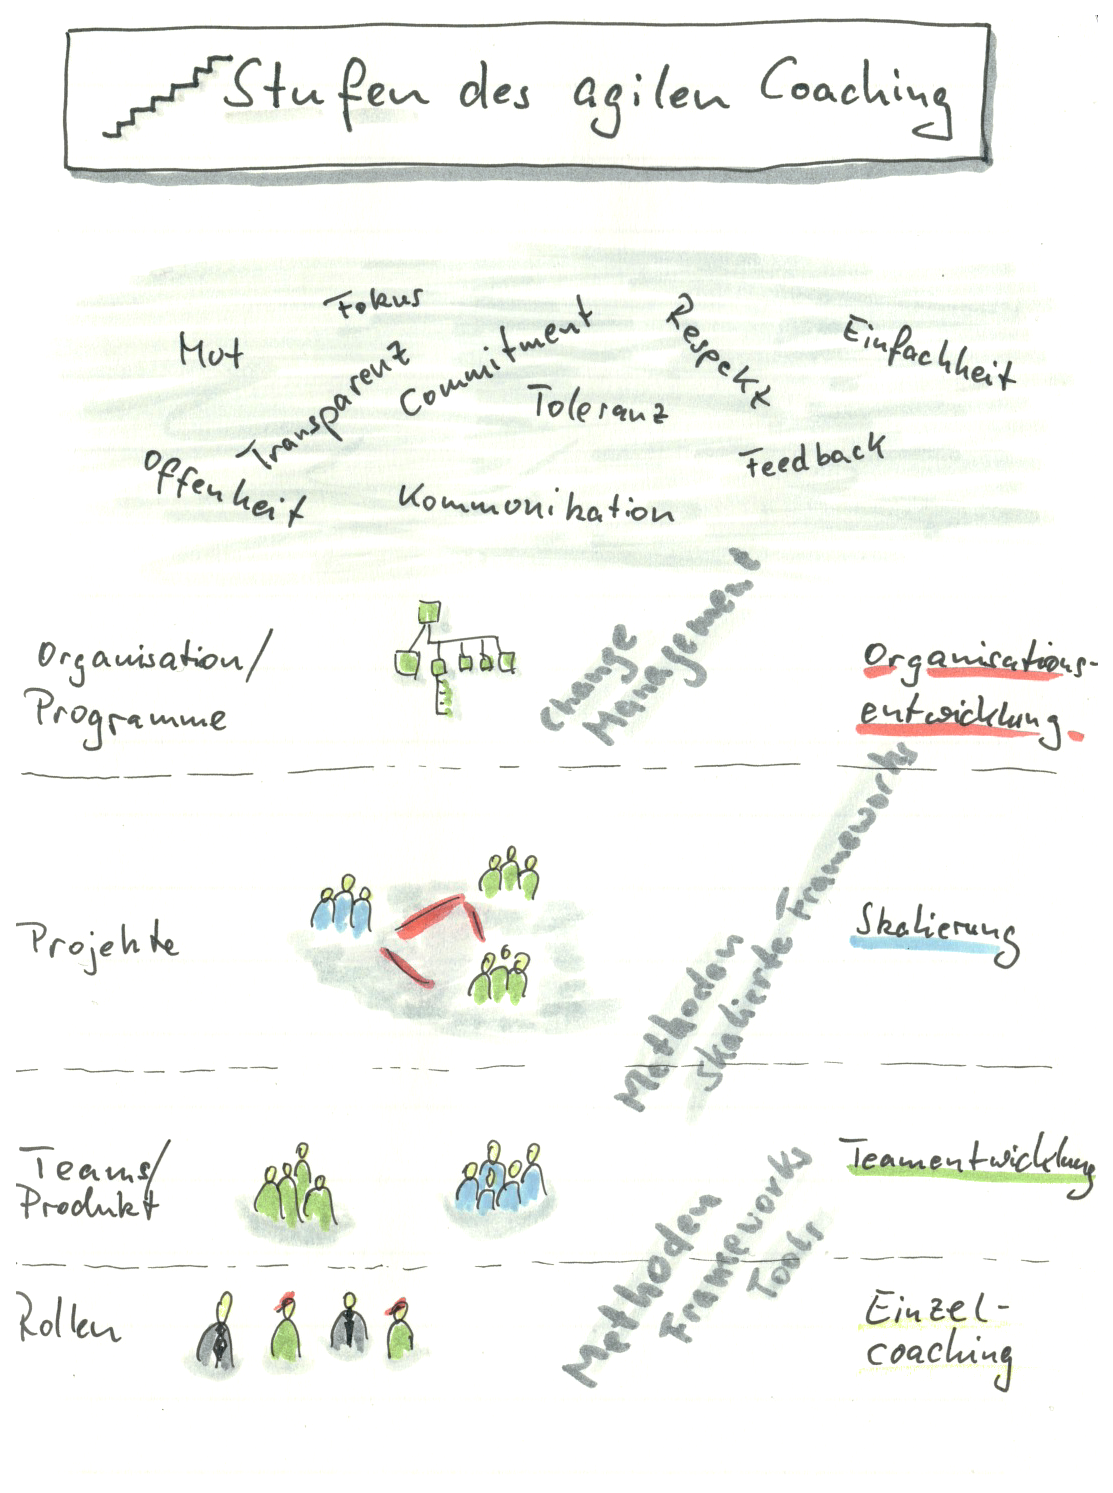 Stufen des agilen Coaching
Fokus
Mut
Transparenz
Commitment
Respekt
Einfachheit
Toleranz
Offenheit
Feedback
Kommunikation
Organisation/
Programme
Change
Management
Organisations-
entwicklung
Projekte
Methoden
skalierte Frameworks
Skalierung
Teams/
Produkt
Teamentwicklung
Rollen
Methoden
Frameworks
Tools
Einzel-
coaching